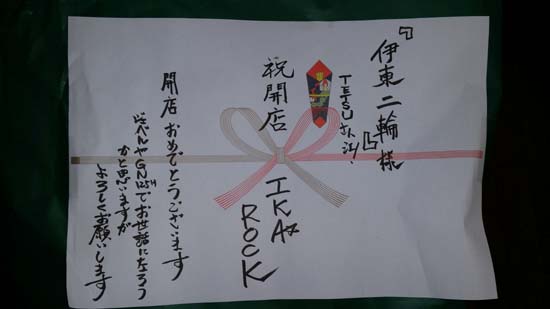 『伊東二輪様』
TETSUさん江!
祝開店
IKAz
ROCK
開店 おめでとうございます
ジェベルヤGN125Hでお世話になろう
かと思いますが
よろしくお願いします